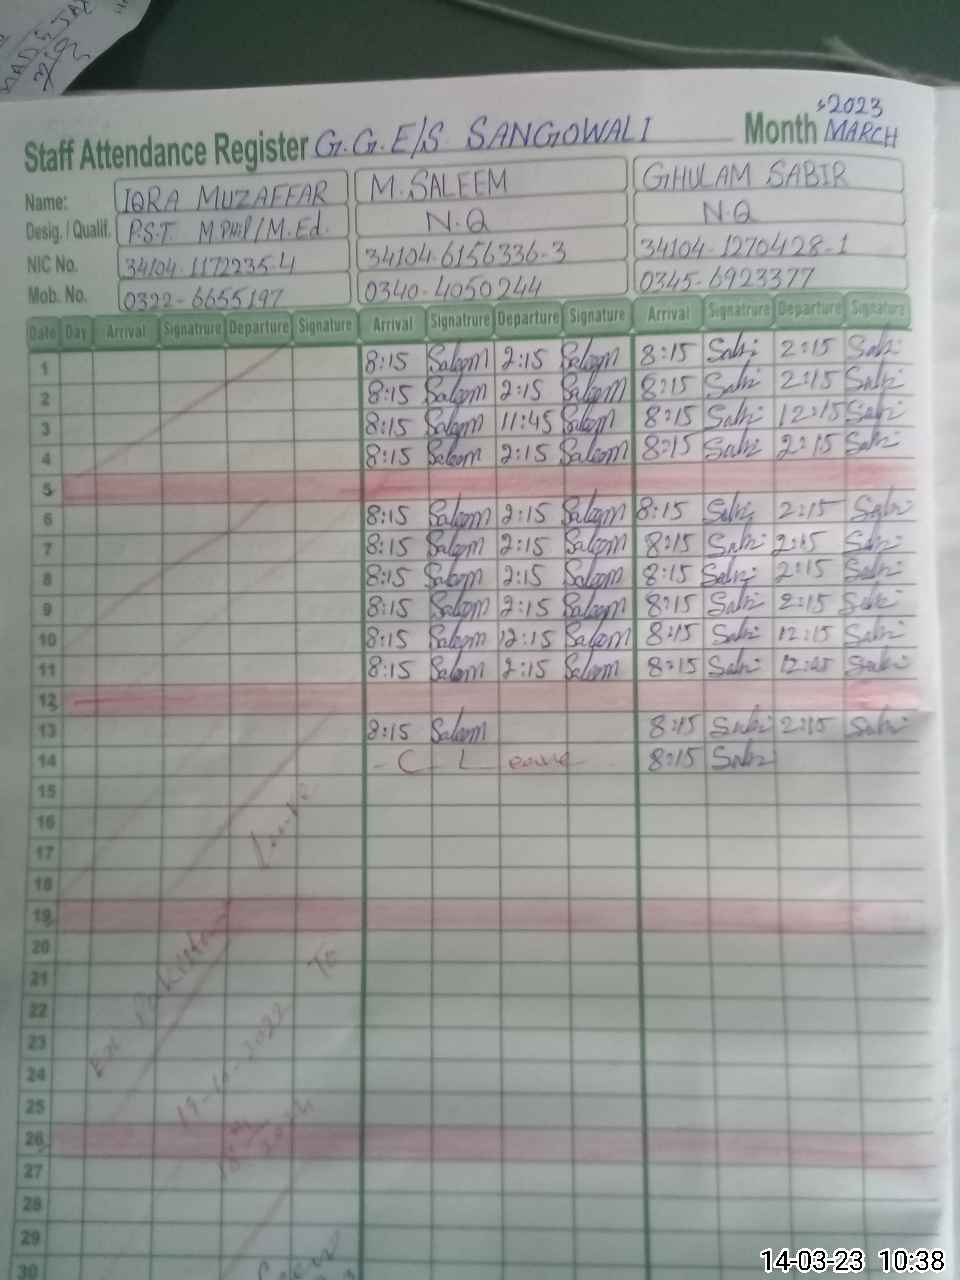 Staff Attendance Register G.G.E/S. SANGOWALI Month MARCH 2023
Name: IQRA MUZAFFAR M. SALEEM GHULAM SABIR
Desig. / Qualif. P.S.T. M Phil / M.Ed. N.Q N.Q
NIC No. 34104-1172235-4 34104-6156336-3 34104-1270428-1
Mob. No. 0322-6655197 0340-4050244 0345-6923377
Date Day Arrival Signatrure Departure Signature Arrival Signatrure Departure Signature Arrival Signatrure Departure Signature
1 8:15 Saleem 2:15 Saleem 8:15 Sabir 2:15 Sabir
2 8:15 Saleem 2:15 Saleem 8:15 Sabir 2:15 Sabir
3 8:15 Saleem 11:45 Saleem 8:15 Sabir 12:15 Sabir
4 8:15 Saleem 2:15 Saleem 8:15 Sabir 2:15 Sabir
5
6 8:15 Saleem 2:15 Saleem 8:15 Sabir 2:15 Sabir
7 8:15 Saleem 2:15 Saleem 8:15 Sabir 2:15 Sabir
8 8:15 Saleem 2:15 Saleem 8:15 Sabir 2:15 Sabir
9 8:15 Saleem 2:15 Saleem 8:15 Sabir 2:15 Sabir
10 8:15 Saleem 12:15 Saleem 8:15 Sabir 12:15 Sabir
11 8:15 Saleem 2:15 Saleem 8:15 Sabir Sabir
12
13 8:15 Saleem 8:15 Sabir 2:15 Sabir
14 C Leave 8:15 Sabir
15
16
17
18
19
20
21
22
23
24
25
26
27
28
29
30
Ex Pakistan Leave
To
14-03-23 10:38